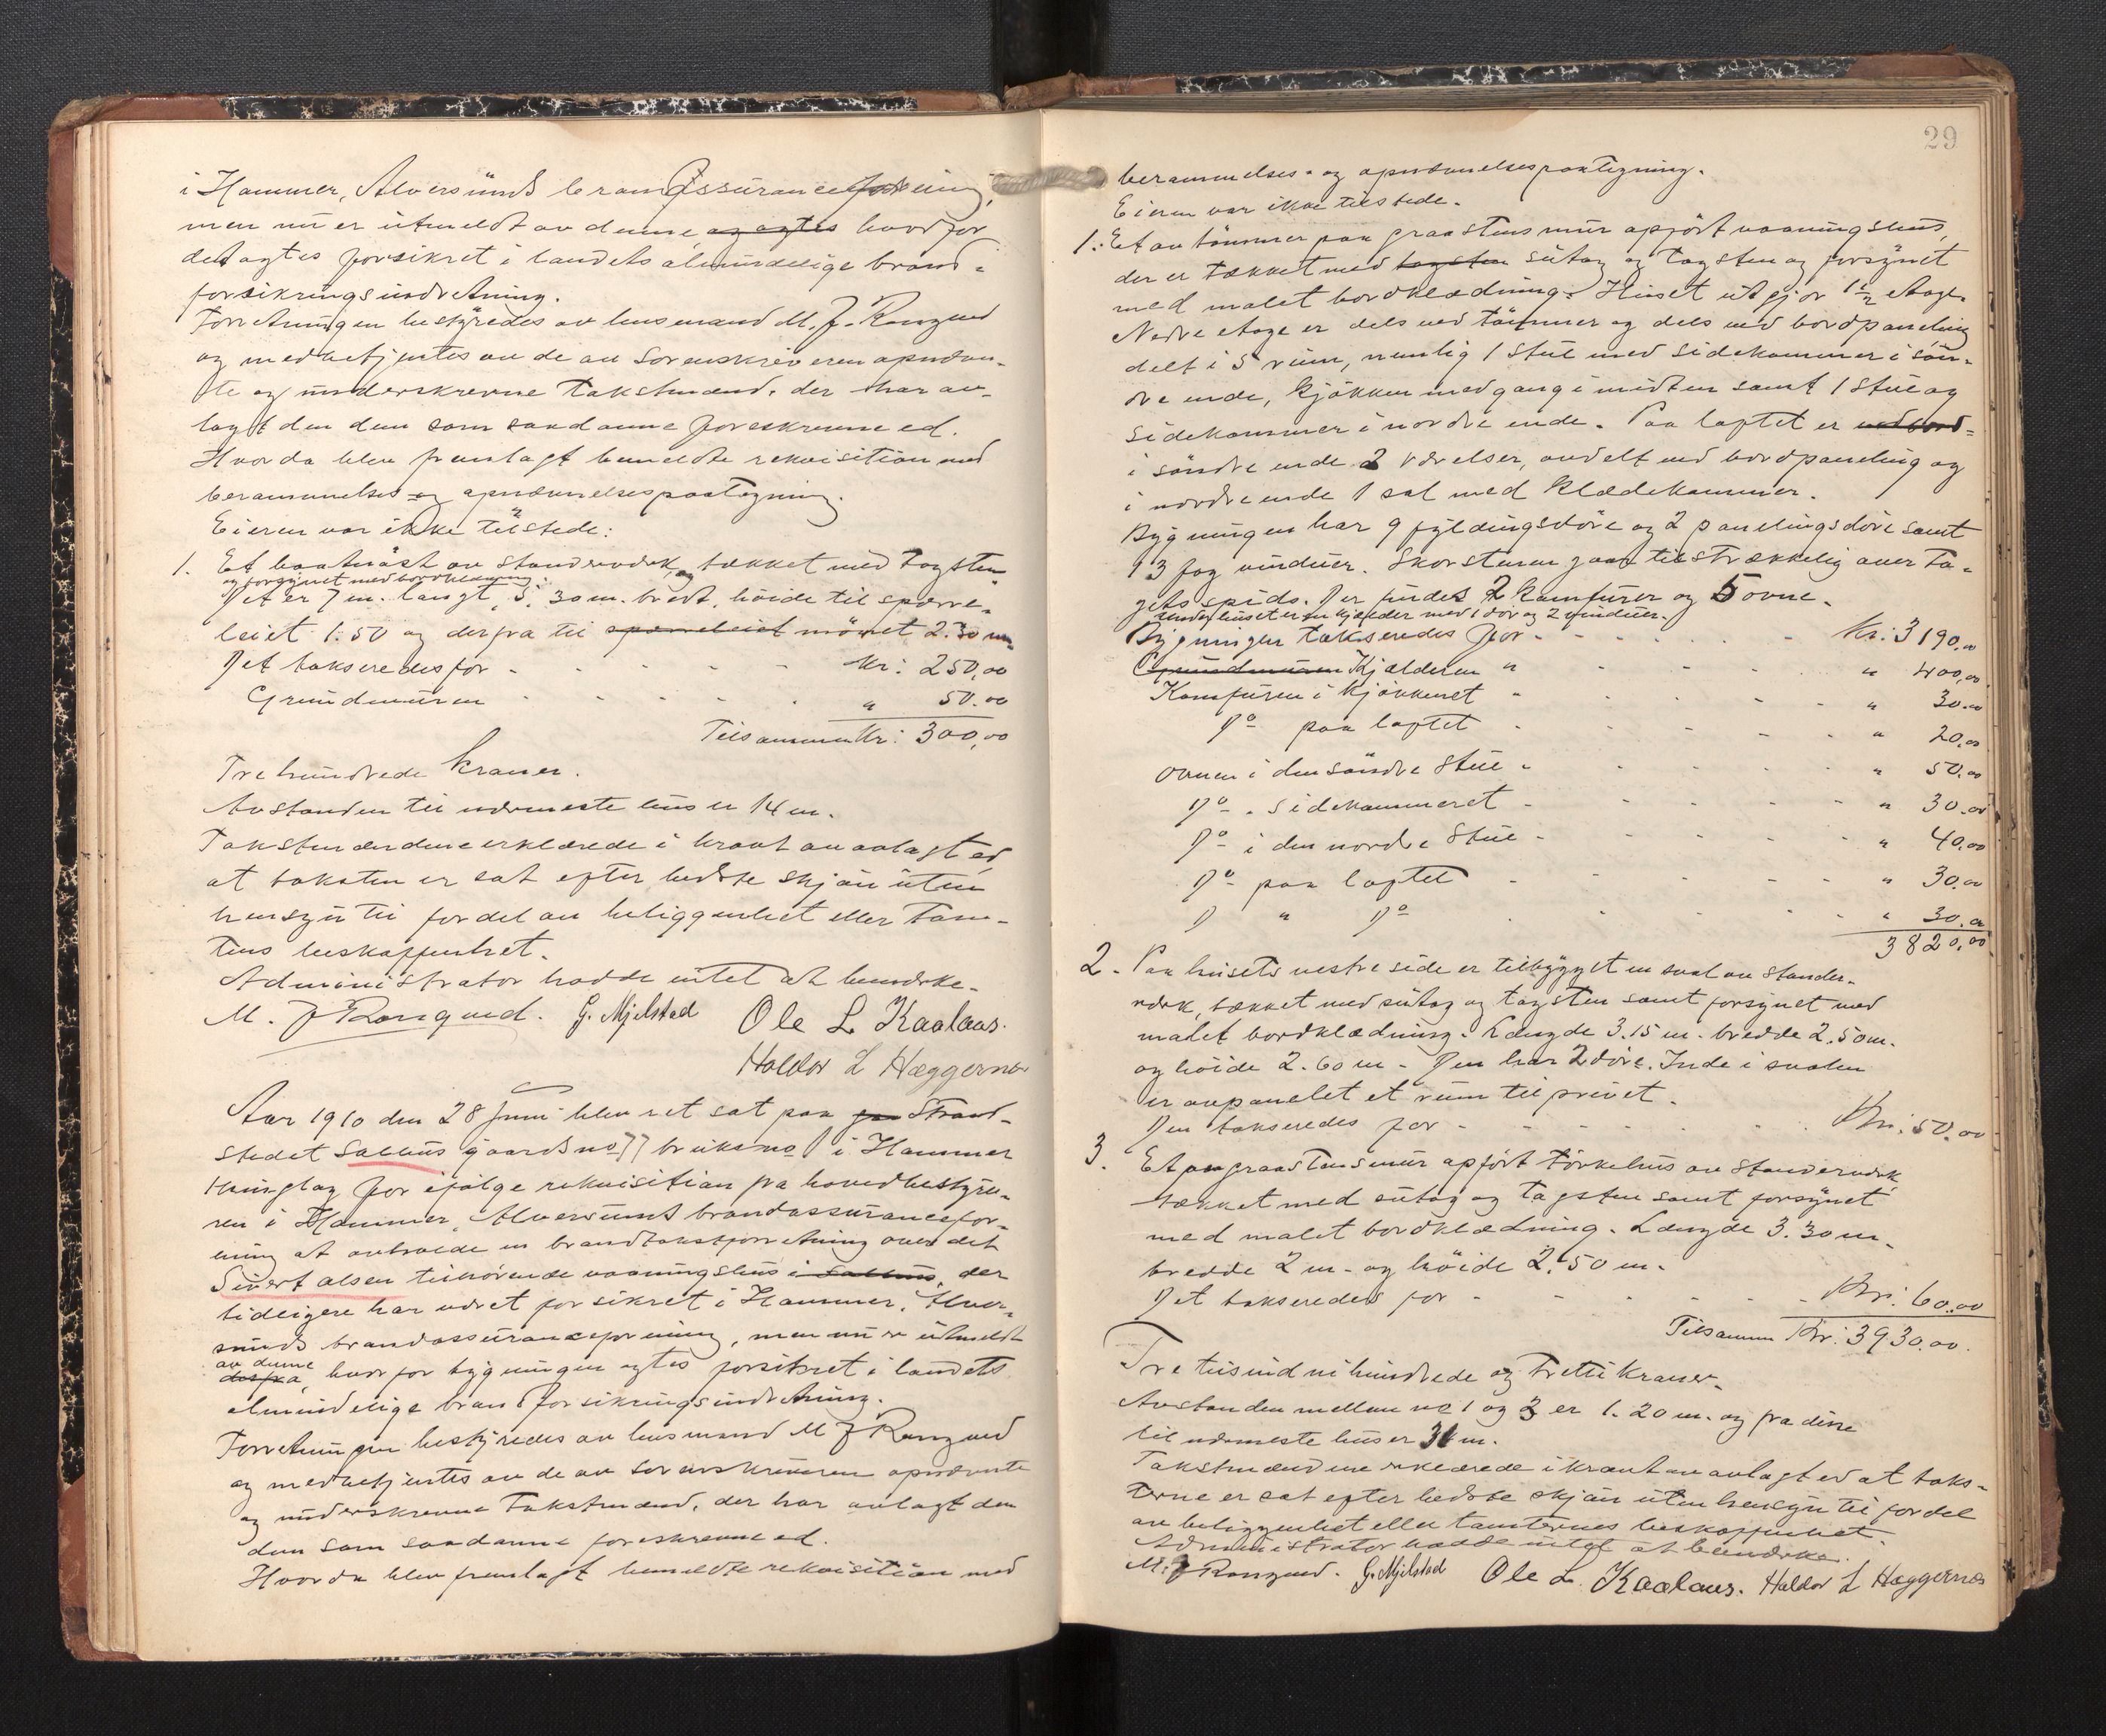 i Hammer, Alversunds brandassuranceforening,
men nu er utmeldt av denne og agtes hvorfor
det agtes forsikret i landets almindelige brand-
forsikringsindretning.
Forretningen bestyredes av lensmand M. J. Rongved
og medbetjentes av de av sorenskriveren opnævn-
te og underskrevne takstmænd, der har av-
lagt den dem som saadanne foreskrevne ed.
Hvorda blev fremlagt bemeldte rekvisition med
berammelses- og opnævnelsespaategning.
Eieren var ikke tilstede:
1. Et baatnøst av standerverk, tækket med tagsten
og forsynet med bordklædning.
Det er 7 m. langt, 5.30 m. bredt, høide til spærre-
leiet 1.50 og derfra til spærreleiet mønet 2.30 m.
Det takseredes for - - - - - Kr: 250,00
Grundmuren - - - - - " 50.00
Tilsammen Kr: 300,00
Tre hundrede kroner.
Avstanden til nærmeste hus er 14 m.
Takstmændene erklærede i kraft av avlagt ed
at taksten er sat efter bedste skjøn uten
hensyn til fordel av beliggenhet eller tom-
tens beskaffenhet.
Administrator hadde intet at bemerke.
M. J Rongved. G. Mjelstad Ole L. Kaalaas.
Haldor L Hæggernes
Aar 1910 den 28 Juni blev ret sat paa gaa Strand-
stedet Salhus gaards no 77 bruks no 1 i Hammer
thinglag for ifølge rekvisition fra hovedbestyre-
ren i Hammer, Alversunds brandassurancefor-
ening at avholde en brandtakstforretning over det
Sivert Olsen tilhørende vaaningshus i Salhus, der
tidligere har været forsikret i Hammer, Alver-
sunds brandassuranceforening, men nu er utmeldt
av denne
derfra, hvorfor bygningen agtes forsikret i landets
almindelige brandforsikringsindretning.
Forretningen bestyredes av lensmand M J Rongved
og medbetjentes av de av sorenskriveren opnævnte
og underskrevne takstmænd, der har avlagt den
dem som saadanne foreskrevne ed.
Hvorda blev fremlagt bemeldte rekvisition med
29
berammelses- og opnævnelsespaategning.
Eieren var ikke tilstede.
1. Et av tømmer paa graastensmur opført vaaningshus,
der er tækket med tagsten sutag og tagsten og forsynet
med malet bordklædning. Huset utgjør 1 1/2 etage.
Nedre etage er dels ved tømmer og dels ved bordpaneling
delt i 5 rum, nemlig 1 stue med sidekammer i søn-
dre ende, kjøkken med gang i midten samt 1 stue og
sidekammer i nordre ende. Paa loftet er ved bord-
i søndre ende 2 værelser, avdelt ved bordpaneling og
i nordre ende 1 sal med klædekammer.
Bygningen har 9 fyldingsdøre og 2 panelingsdøre samt
13 fag vinduer. Skorstenen gaar tilstrækkelig over ta-
gets spids. Der findes 2 komfurer og 5 ovne.
Under huset er en kjælder med 1 dør og 2 vinduer.
Bygningen takseredes for - - - - - Kr: 3190.00
Grundmuren Kjælderen " - - - - " 400,00
Komfuren i kjøkkenet " - - - - " 30.00
Do paa loftet - - - - - " 20,00
Ovnen i den søndre stue - - - - " 50.00
Do - sidekammeret - - - - " 30.00
Do i den nordre stue - - - - " 40,00
Do paa loftet - - - - " 30.00
D " Do - - - - " 30.00
3820,00
2. Paa husets vestre side er tilbygget en sval av stander-
verk, tækket med sutag og tagsten samt forsynet med
malet bordklædning. Længde 3.15 m. bredde 2.50 m.
og høide 2.60 m. Den har 2 døre. Inde i svalen
er avpanelet et rum til privet.
Den takseredes for - - - - - Kr: 50.00
3. Et paa graastensmur opført tørkehus av standerverk
tækket med sutag og tagsten samt forsynet
med malet bordklædning. Længde 3.30 m.
bredde 2 m. og høide 2.50 m.
Det takseredes for - - - - - Kr: 60.00
Tilsammen Kr: 3930.00.
Tre tusind ni hundrede og tretti kroner.
Avstanden mellem no 1 og 3 er 1.20 m. og fra disse
til nærmeste hus er 31 m.
Takstmændene erklærede i kraft av avlagt ed at taks-
terne er sat efter bedste skjøn uten hensyn til fordel
av beliggenhet eller tomternes beskaffenhet.
Administrator hadde intet at bemerke.
M. J Rongved. G. Mjelstad Ole L. Kaalaas. Haldor L Hæggernes